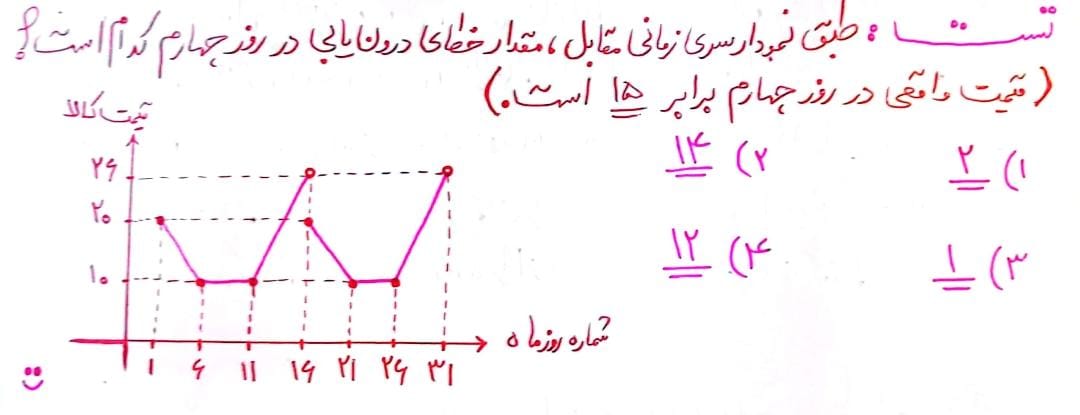 تست : طبق نمودار سری زمانی مقابل ، مقدار خطای درون‌یابی در روز چهارم کدام است ؟
( قیمت واقعی در روز چهارم برابر ۱۵ است . )
۱) ۲
۲) ۱۴
۳) ۱
۴) ۱۲
قیمت کالا
۲۶
۲۰
۱۰
۱ ۶ ۱۱ ۱۶ ۲۱ ۲۶ ۳۱
شماره روز ماه